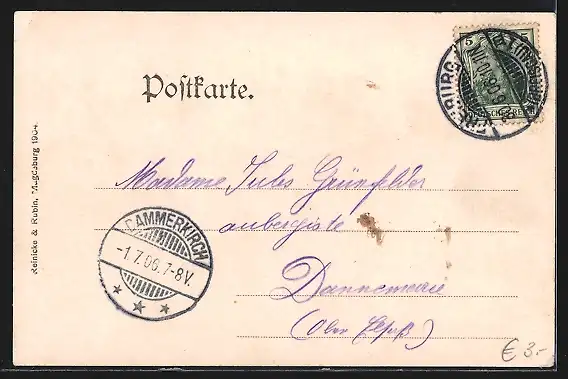 Postkarte.
5
Reinicke & Rubin, Magdeburg 1904.
Madame Jules Grünfelder
aubergiste
Dannemarie
(Ober Elsaß)
DAMMERKIRCH
-1.7.06.7-8V.
* * *
€ 3.-